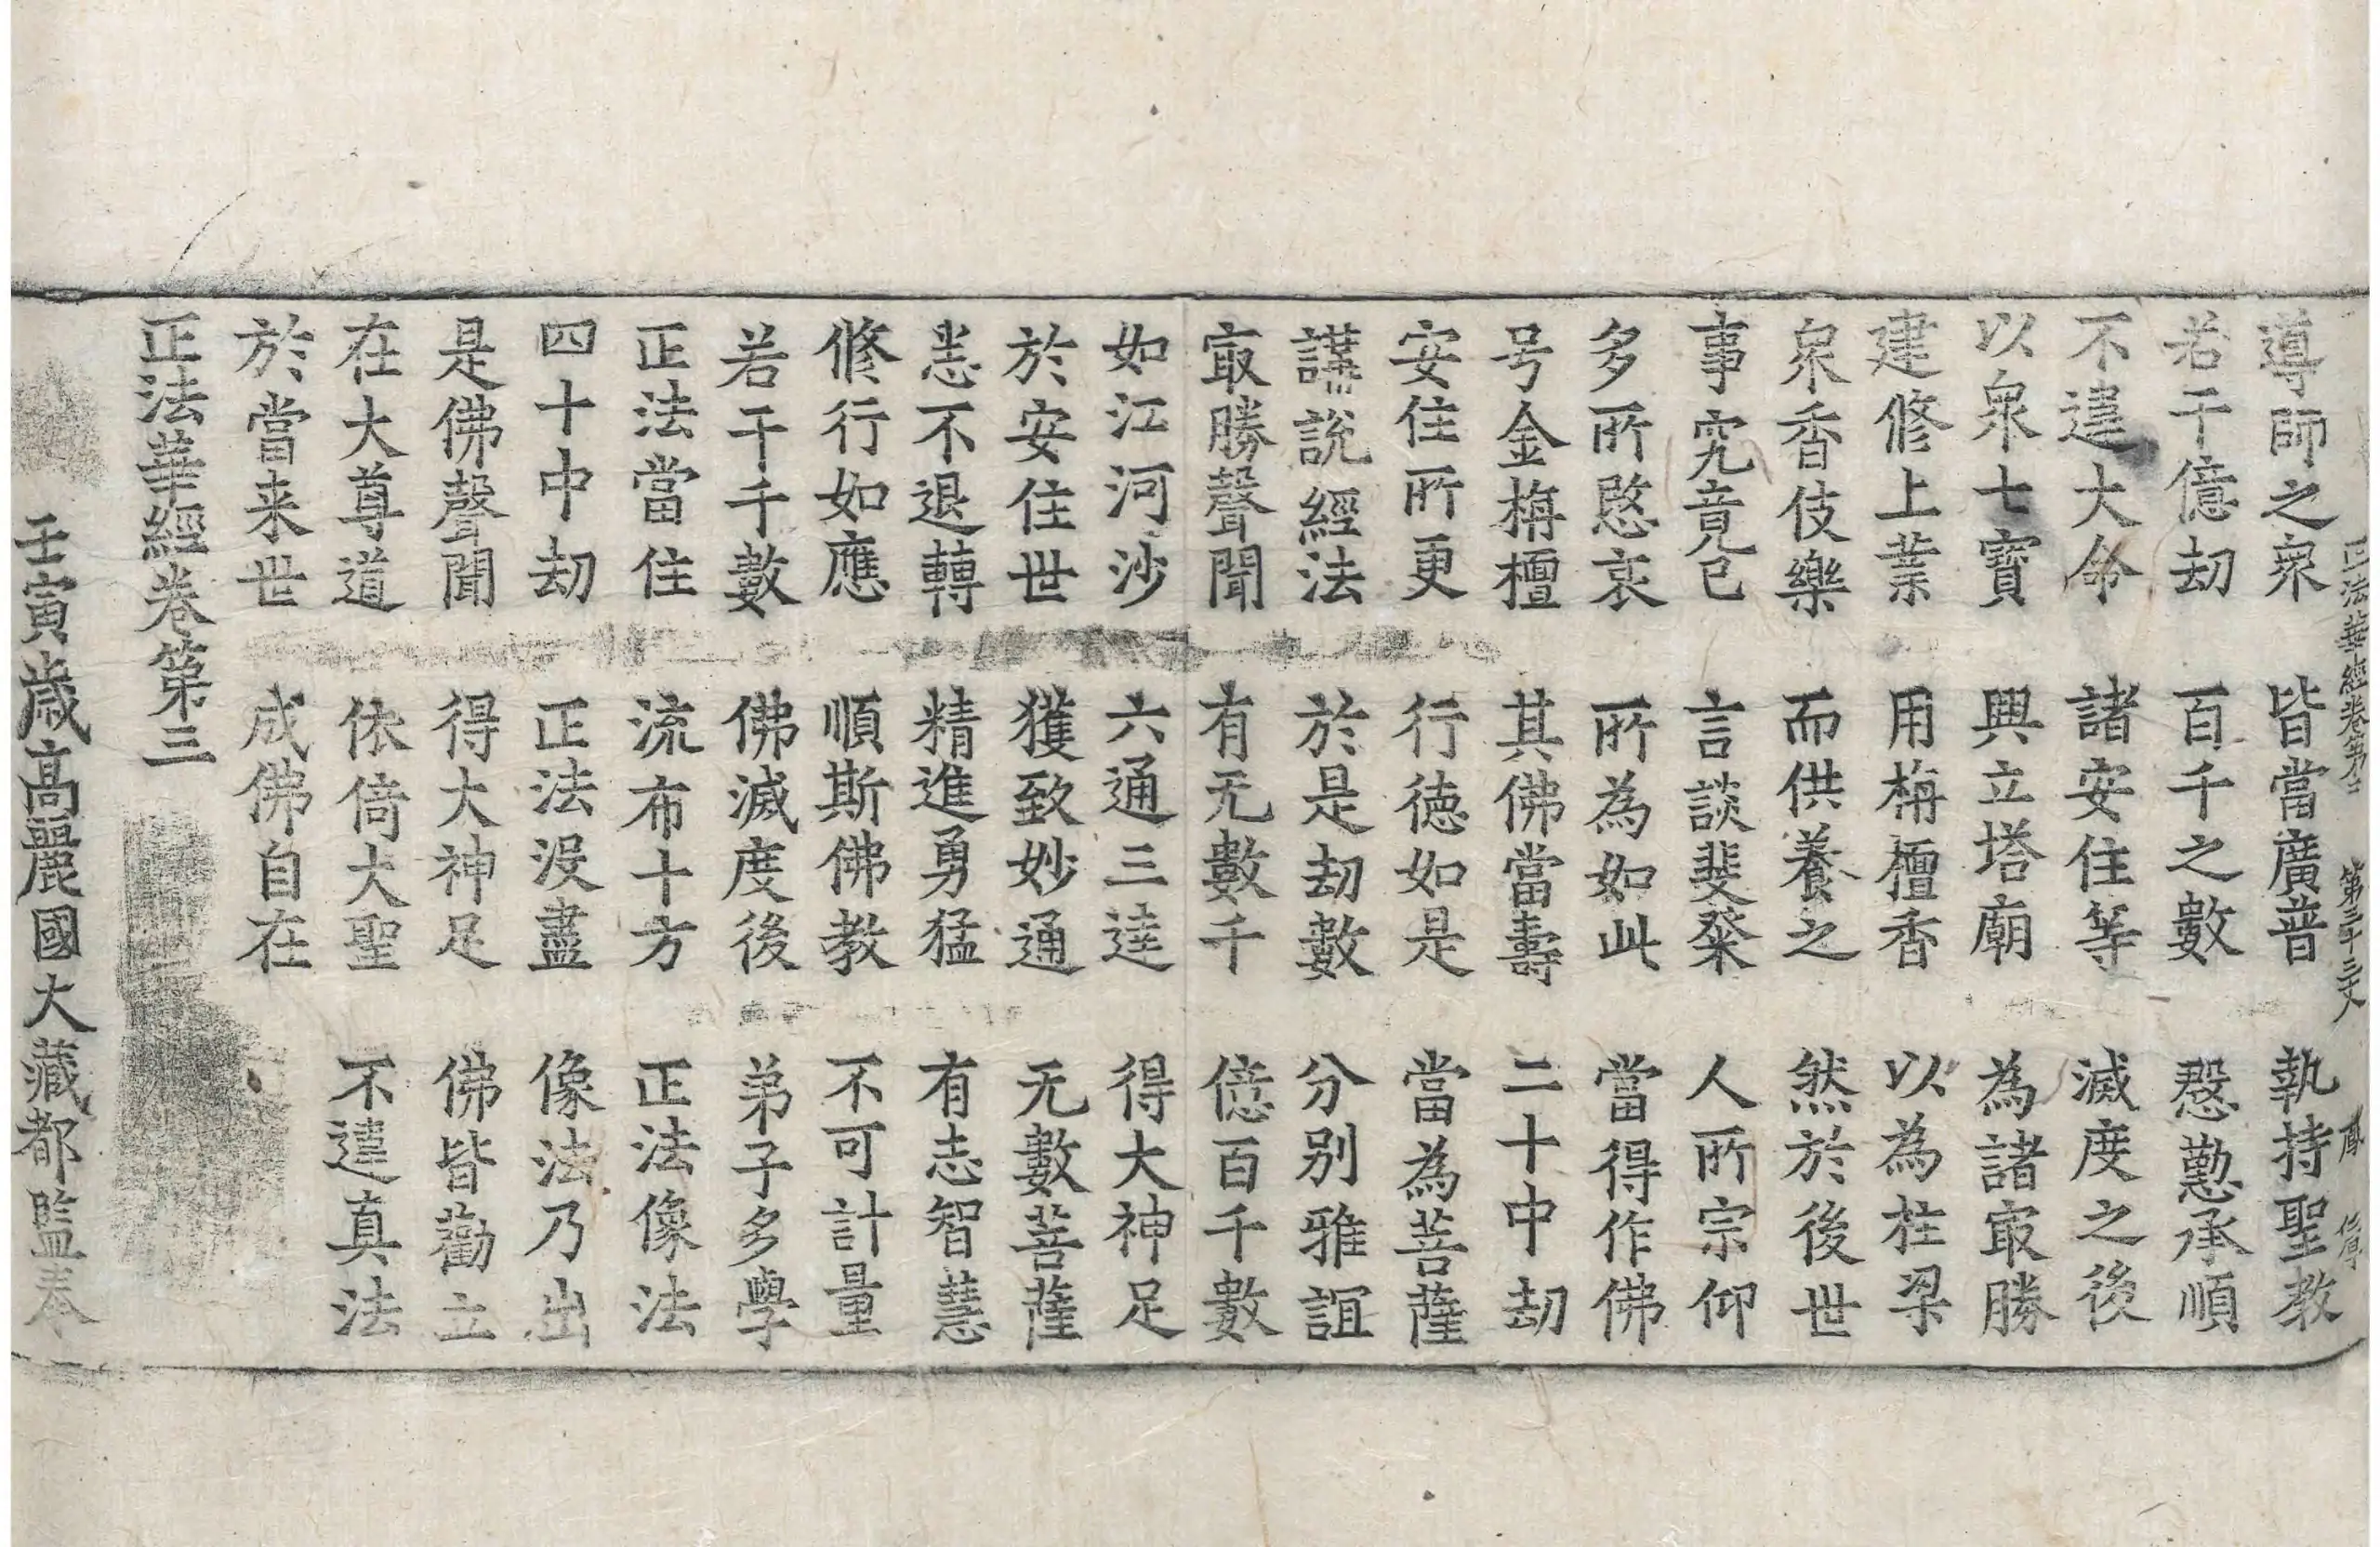 正法華經卷第三 第三十三丈 鳳
導師之衆 皆當廣普 執持聖教
若干億劫 百千之數 慇懃承順
不違大命 諸安住等 滅度之後
以衆七寶 興立塔廟 為諸㝡勝
建修上業 用栴檀香 以為柱梁
衆香伎樂 而供養之 然於後世
事究竟已 言談斐粲 人所宗仰
多所愍哀 所為如此 當得作佛
号金栴檀 其佛當壽 二十中劫
安住所更 行德如是 當為菩薩
講說經法 於是劫數 分別雅誼
㝡勝聲聞 有无數千 億百千數
如江河沙 六通三達 得大神足
於安住世 獲致妙通 无數菩薩
悉不退轉 精進勇猛 有志智慧
修行如應 順斯佛教 不可計量
若干千數 佛滅度後 弟子多學
正法當住 流布十方 正法像法
四十中劫 正法没盡 像法乃出
是佛聲聞 得大神足 佛皆勸立
在大尊道 依倚大聖 不違真法
於當来世 成佛自在
正法華經卷第三
壬寅歲高麗國大藏都監奉